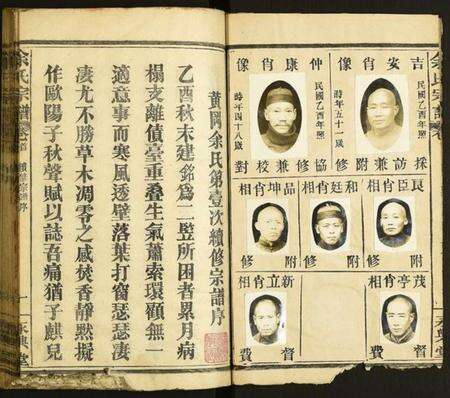 余氏宗譜
永興堂
吉安肖像
民國乙酉年照
時年五十一歲
採訪兼附修
仲康肖像
民國乙酉年照
時年四十八歲
協修兼校對
良臣肖相
附修
和廷肖相
附修
品坤肖相
附修
茂亭肖相
督費
新立肖相
督費
黃岡余氏第壹次續修宗譜序
乙酉秋末建銘為二豎所困者累月病
榻支離債臺重疊生氣蕭索環顧無一
適意事而寒風透壁落葉打窗瑟瑟淒
淒尤不勝草木凋零之感焚香靜默擬
作歐陽子秋聲賦以誌吾痛猶子麒兒
余氏宗譜
卷首
續修宗譜序
一
永興堂